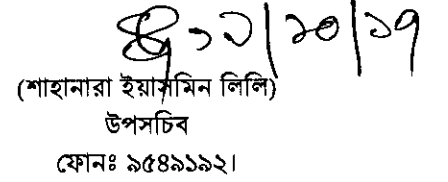 ১২/১০/১৭
(শাহানারা ইয়াসমিন লিলি)
উপসচিব
ফোনঃ ৯৫৪৯১৯২।